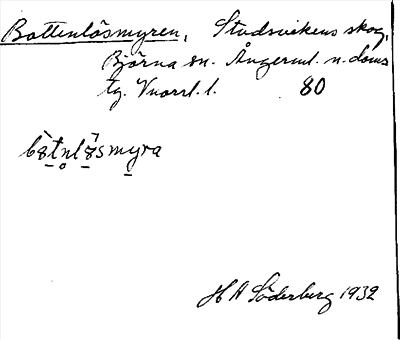 Bottenlösmyren, Studsvikens skog,
Björna sn. Ångerml. n. doms
tg. Vnorrl. l. 80
H A Söderberg 1932